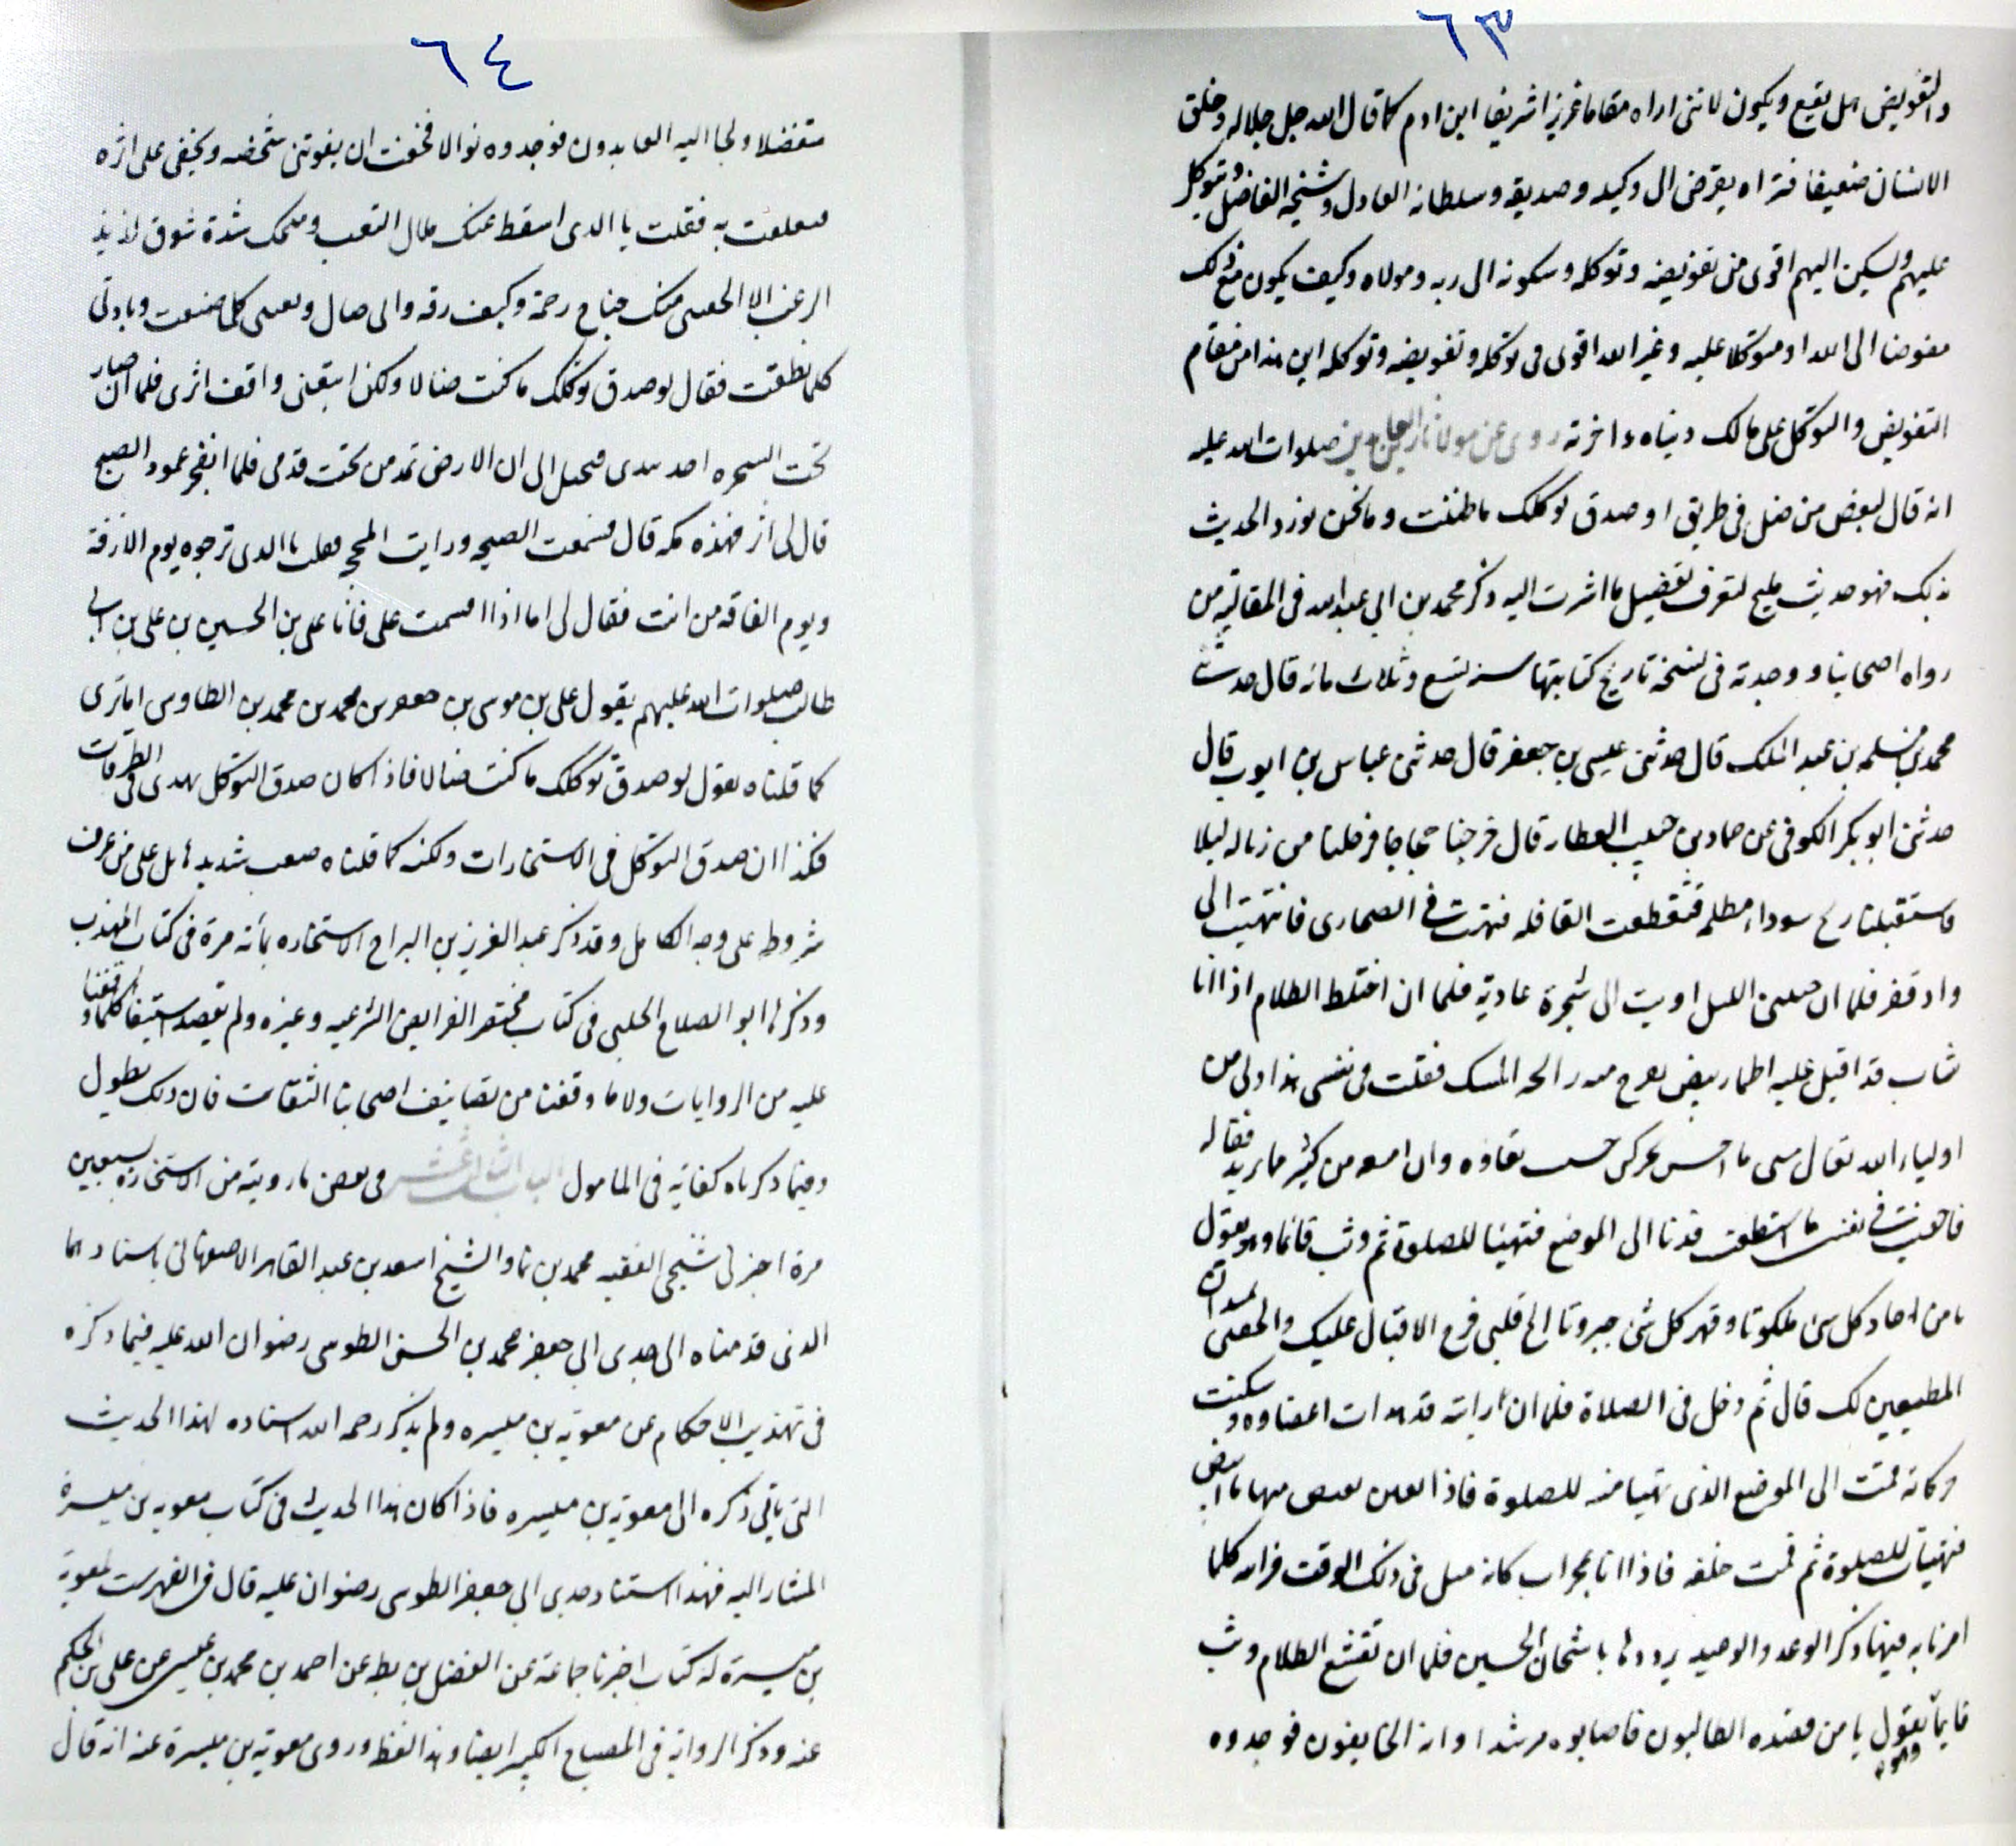 ٦٣
والتفويض هل يقع ويكون لانني اراه مقاما عزيزا شريفا ابن ادم كما قال الله جل جلاله وخلق
الانسان ضعيفا فتراه يفوض الى وكيله وصديقه وسلطانه العادل وشيخه الفاضل ويتوكل
عليهم ويسكن اليهم اقوى من تفويضه وتوكله وسكونه الى ربه ومولاه وكيف يكون مع ذلك
مفوضا الى الله او متوكلا عليه وغير الله اقوى في توكله وتفويضه وتوكله اين هذا من مقام
التفويض والتوكل على مالك دنياه واخرته روى عن مولانا زين العابدين صلوات الله عليه
انه قال لبعض من ضل في طريق لو صدق توكلك ما ضللت وها نحن نورد الحديث
بذلك فهو حديث مليح لتعرف تفضيل ما اشرت اليه ذكر محمد بن ابي عبد الله في امقاليه من
رواه اصحابنا ووجدته في نسخة تاريخ كتابتها سنه تسع وثلاث مائه قال حدثنا
محمد بن مسلمه بن عبد الملك قال حدثني عيسى بن جعفر قال حدثني عباس بن ايوب قال
حدثني ابو بكر الكوفي عن حماد بن حبيب العطار قال خرجنا حجاجا فرحلنا من زباله ليلا
فاستقبلنا ريح سوداء مظلمه فتقطعت القافله فتهت في الصحارى فانتهيت الى
واد قفر فلما ان جننى الليل اويت الى شجرة عاديه فلما ان اختلط الظلام اذا انا
شاب قد اقبل عليه اطمار بيض يفوح منه رائحه المسك فقلت في نفسي هذا ولى من
اولياء الله تعالى متى ما احس بحركتي خشيت نفاره وان امنعه من كثير مما يريد فقاله
فاخفيت نفسي ما استطعت فدنا الى الموضع فتهيئا للصلوة ثم وثب قائما وهو يقول
يا من احاد كل شئ ملكوتا وقهر كل شئ جبروتا الج قلبي فرح الاقبال عليك والحقني بميدان
المطيعين لك قال ثم دخل في الصلاة فلما ان رايته قد هدات اعضاوه وسكنت
حركاته قمت الى الموضع الذي تهيا منه للصلوة فاذا بعين تفيض بماء ابيض
فتهيات للصلوة ثم قمت خلفه فاذا انا بمحراب كانه مثل في ذلك الوقت فرايته كلما
مر بايه فيها ذكر الوعد والوعيد يرددها باشجان الحنين فلما ان تقشع الظلام وثب
قائما وهو يقول يا من قصده الطالبون فاصابوه مرشدا وامه الخايفون فوجدوه
٦٤
متفضلا ولجا اليه العابدون فوجدوه نوالا فخفت ان يفوتني شخصه ويخفى على اثره
فتعلقت به فقلت بالذي اسقط عنك ملال التعب ومنحك شدة شوق لذيذ
الرغب الا الحقتني منك جناح رحمة وكنف رقه فاني ضال وبغيتي كلما صنعت ومنائي
كلما نطقت فقال لو صدق توكلك ما كنت ضالا ولكن اتبعني واقف اثري فلما ان صار
تحت الشجره اخذ بيدي فخيل الى ان الارض تمد من تحت قدمي فلما انفجر عمود الصبح
قال لي ابشر فهذه مكه قال فسمعت الصيحه ورايت المحجه فقلت بالذي ترجوه يوم الازفة
ويوم الفاقه من انت فقال لي اما اذا اقسمت علي فانا علي بن الحسين بن علي بن ابي
طالب صلوات الله عليهم يقول علي بن موسى بن جعفر بن محمد بن محمد بن الطاوس اما ترى
كما قلناه يقول لو صدق توكلك ما كنت ضالا فاذا كان صدق التوكل يهدى في الطرقات
فكذا ان صدق التوكل في الاستخارات ولكنه كما قلناه صعب شديد هايل على من عرف
شروطه على وجه الكامل وقد ذكر عبد العزيز بن البراج الاستخاره بمائه مرة في كتاب المهذب
وذكرها ابو الصلاح الحلبي في كتاب مختصر الفرايض الشرعيه وغيره ولم نقصد استيفا كلما وقفنا
عليه من الروايات ولا ما وقفنا من تصانيف اصحابنا الثقات فان ذلك يطول
وفيما ذكرناه كفايه في المامول الباب الثاني عشر في بعض ما رويته من الاستخاره بسبعين
مرة اخبرني شيخي الفقيه محمد بن نما والشيخ اسعد بن عبد القاهر الاصفهاني باسنادهما
الذي قدمناه الى جدي ابي جعفر محمد بن الحسن الطوسي رضوان الله عليه فيما ذكره
في تهذيب الاحكام عن معويه بن ميسره ولم يذكر رحمه الله اسناده لهذا الحديث
التي ياتي ذكره الى معويه بن ميسره فاذا كان هذا الحديث في كتاب معويه بن ميسرة
المشار اليه فهذا اسناد جدي ابي جعفر الطوسي رضوان عليه قال في الفهرست لمعوية
بن ميسرة له كتاب اخبرنا جماعة عن الفضل بن بطه عن احمد بن محمد بن عيسى عن علي بن الحكم
عنه وذكر الروايه في المصباح الكبير ايضا وهذا لفظه وروى معويه بن ميسرة عنه انه قال